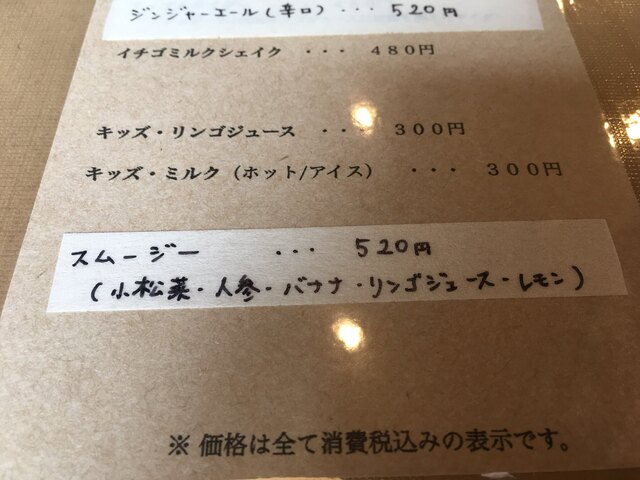 ジンジャーエール(辛口)・・・520円
イチゴミルクシェイク ・・・ 480円
キッズ・リンゴジュース ・・・ 300円
キッズ・ミルク(ホット/アイス) ・・・ 300円
スムージー ・・・ 520円
(小松菜・人参・バナナ・リンゴジュース・レモン)
※価格は全て消費税込みの表示です。